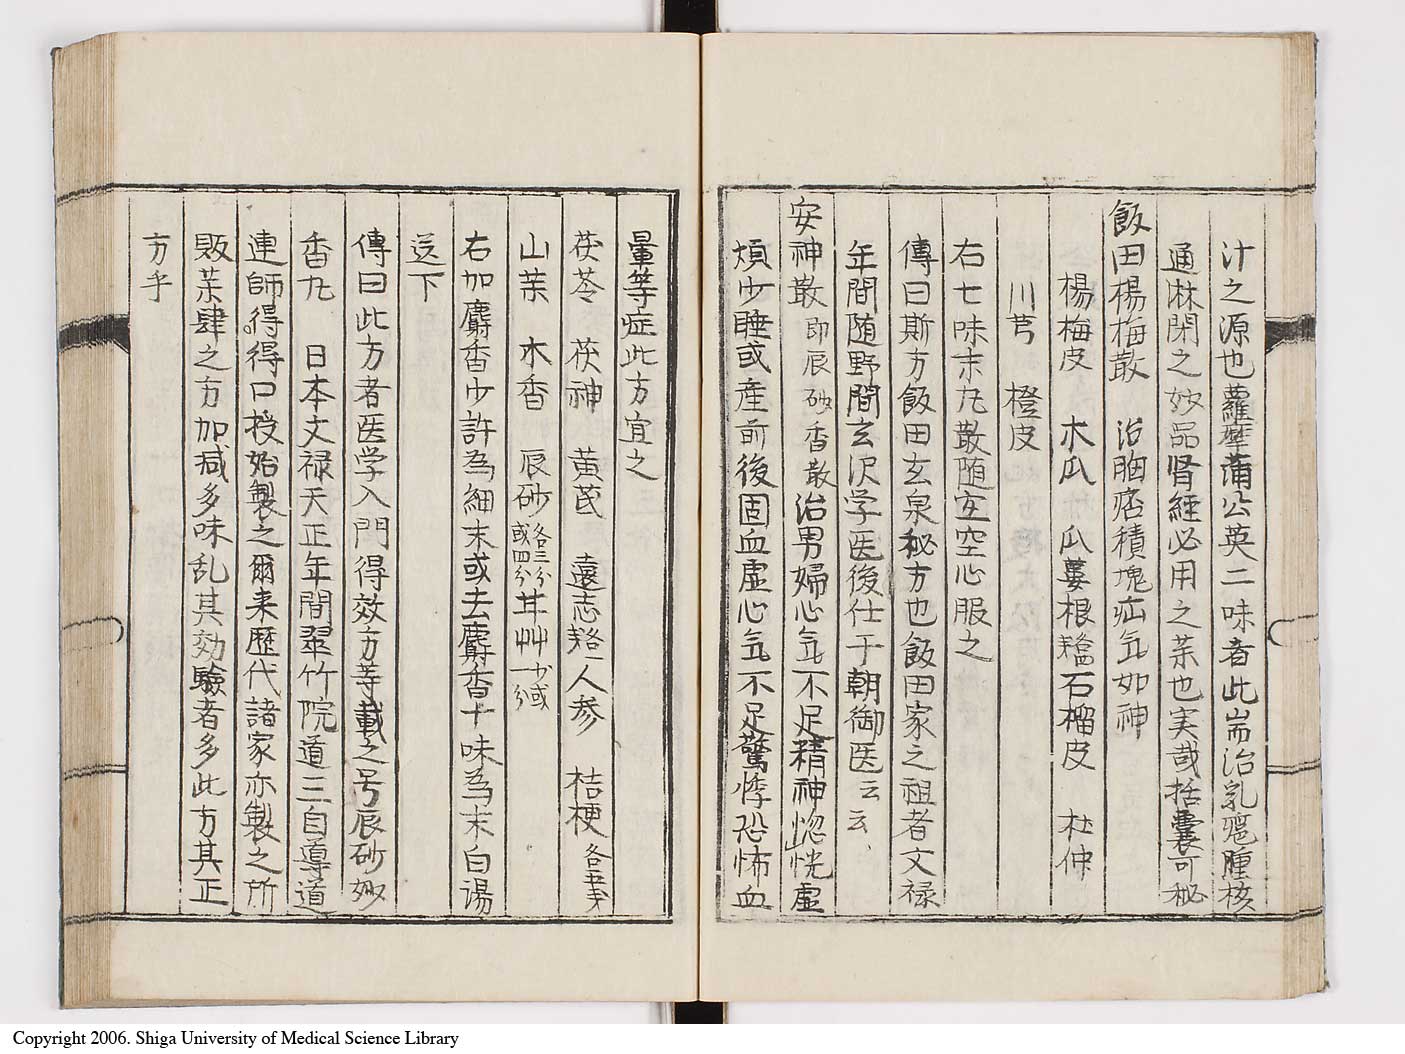 汁之源也蘿摩蒲公英二味者此耑治乳癰腫核
通淋閉之妙品腎経必用之茱也実哉括囊可秘
飯田楊梅散　治胸痞積塊疝気如神
楊梅皮　木瓜　瓜蔞根　石榴皮　杜仲
川芎　橙皮
右七味末丸散随宜空心服之
傳曰斯方飯田玄泉秘方也飯田家之祖者文禄
年間随野間玄沢学医後仕于朝御医云云
安神散　即辰砂香散　治男婦心気不足精神惚恍虚
煩少睡或産前後固血虚心気不足驚悸恐怖血
暈等症此方宜之
茯苓　茯神　黄芪　遠志　人参　桔梗　各五分
山茱　木香　辰砂　各三分或四分　甘艸　一分
右加麝香少許為細末或去麝香十味為末白湯
送下
傳曰此方者医学入門得效方等載之号辰砂妙
香丸　日本文禄天正年間翠竹院道三自導道
連師得得口授始製之爾来歴代諸家亦製之所
販茱肆之方加減多味乱其効験者多此方其正
方乎
Copyright 2006. Shiga University of Medical Science Library